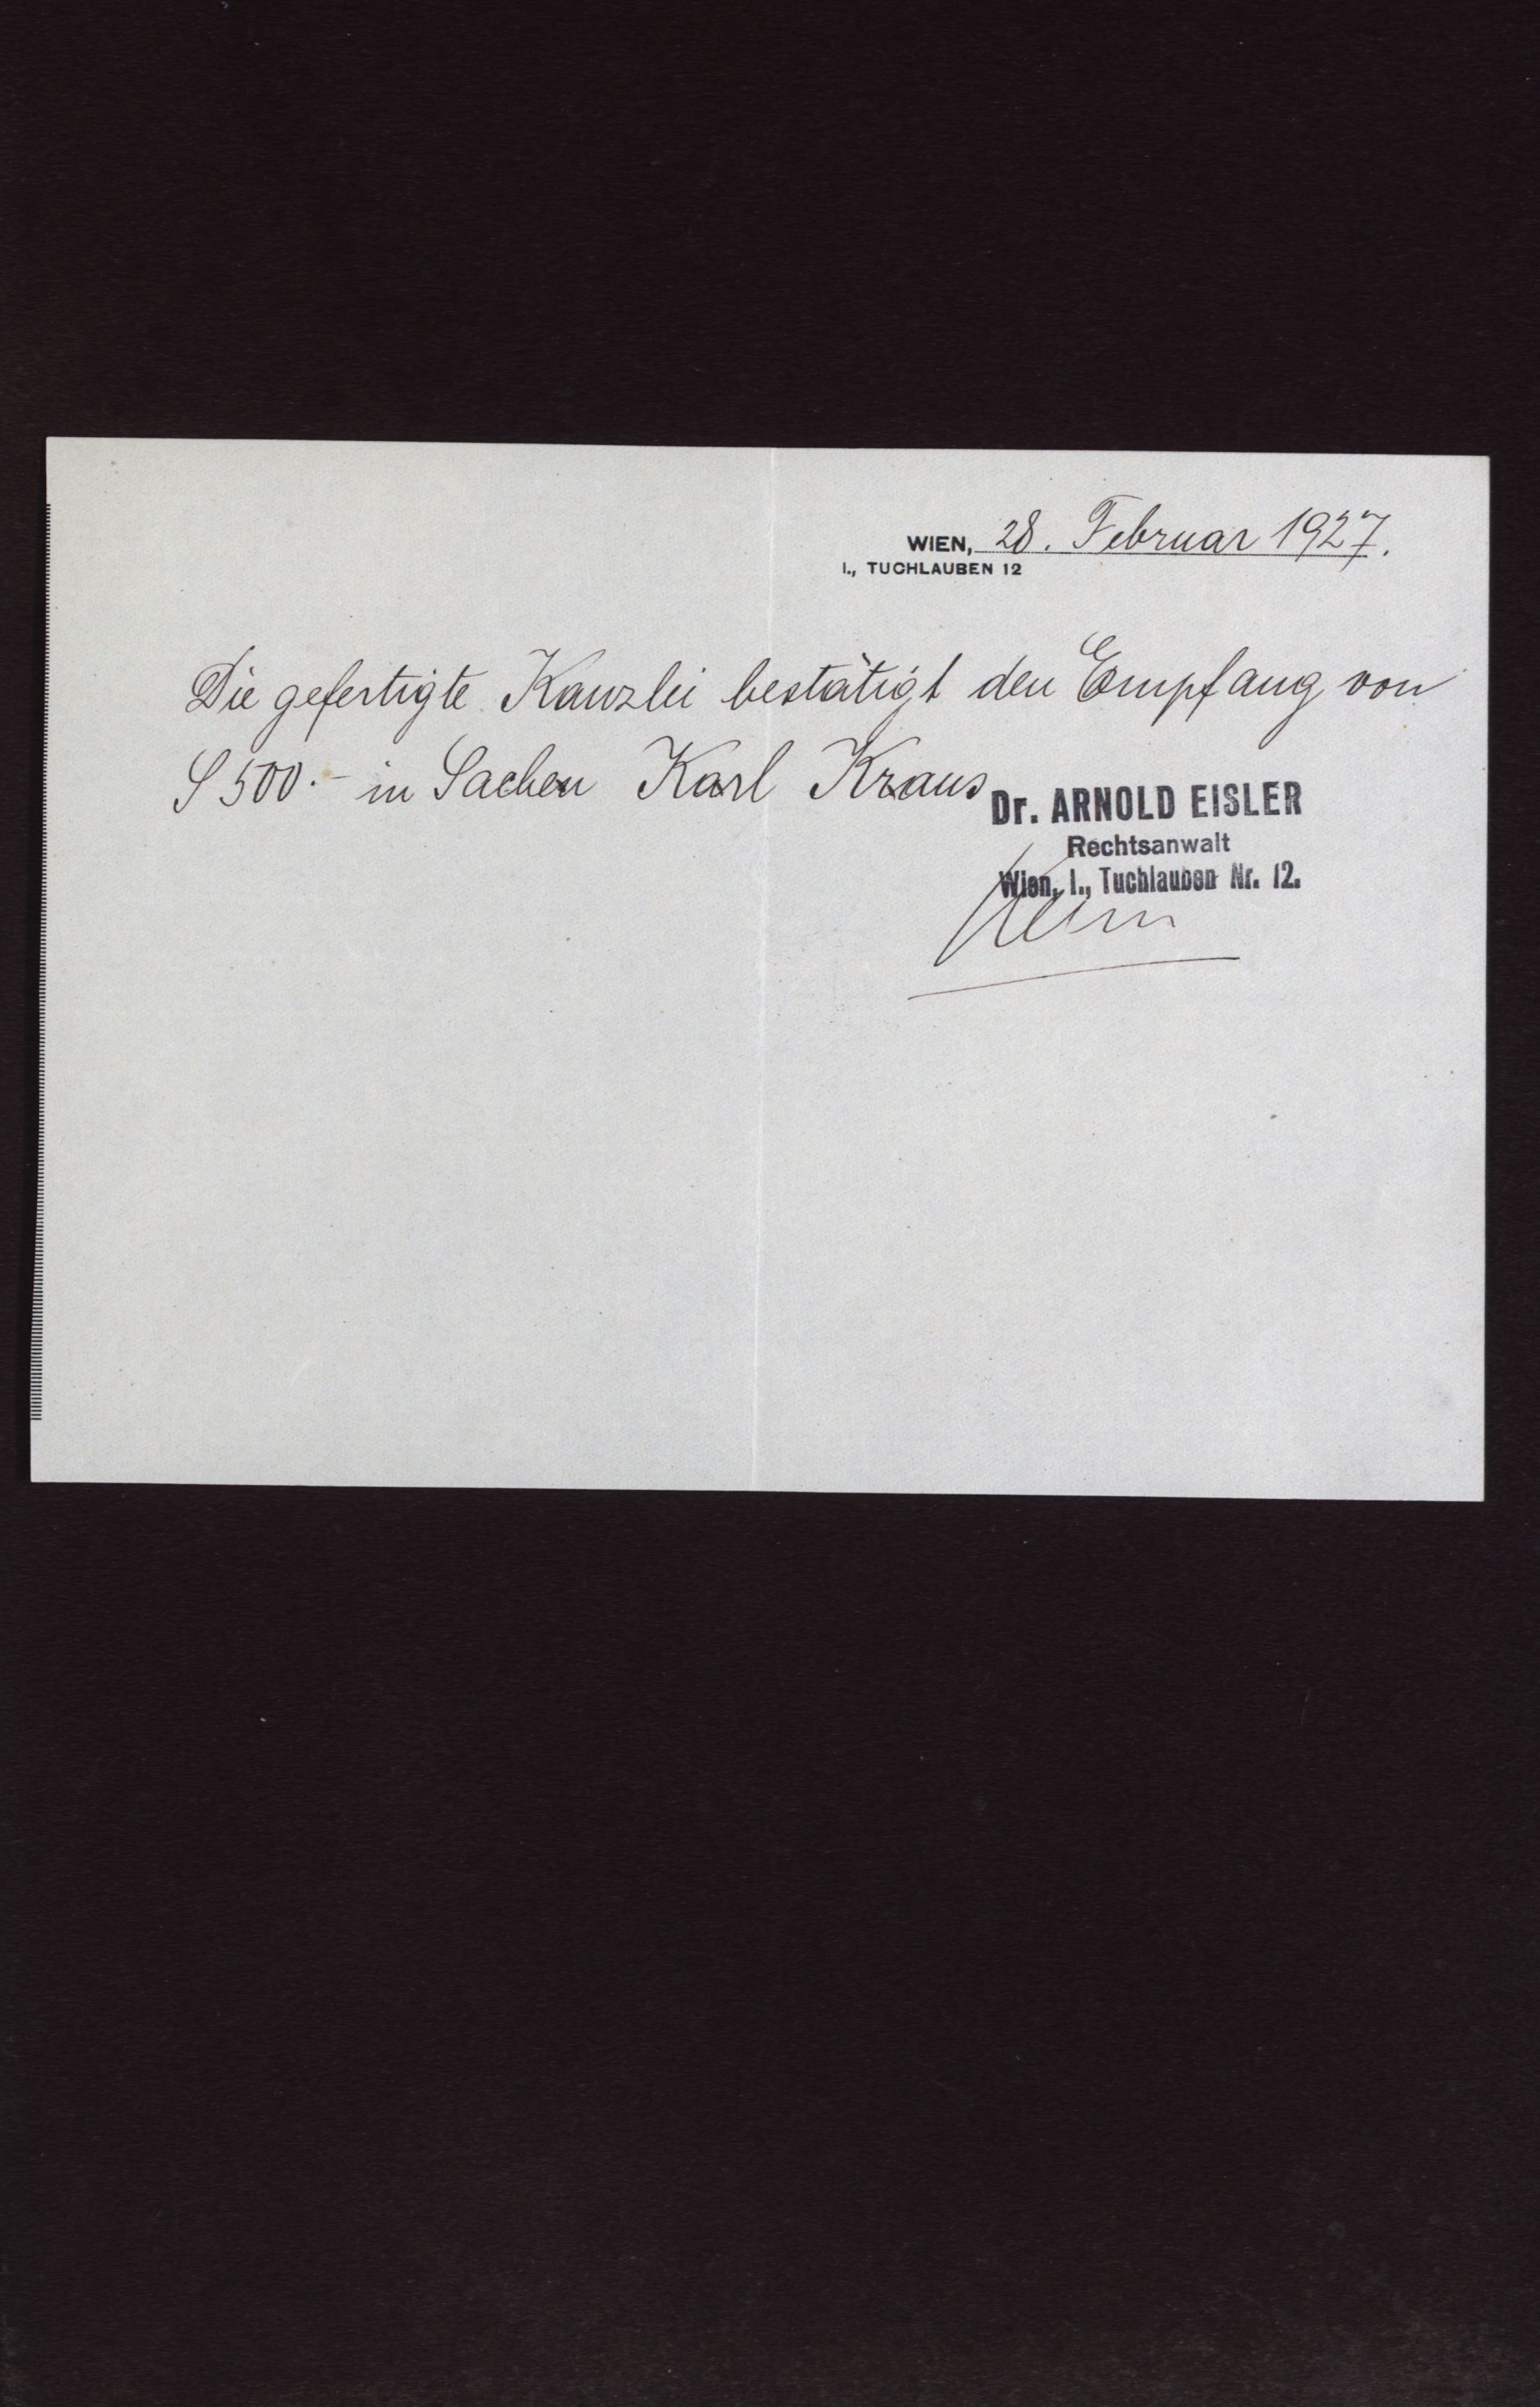 WIEN, 28. Februar 1927.
I., TUCHLAUBEN 12
Die gefertigte Kanzlei bestätigt den Empfang von
S 500.- in Sachen Karl Kraus
Dr. ARNOLD EISLER
Rechtsanwalt
Wien, I., Tuchlauben Nr. 12.